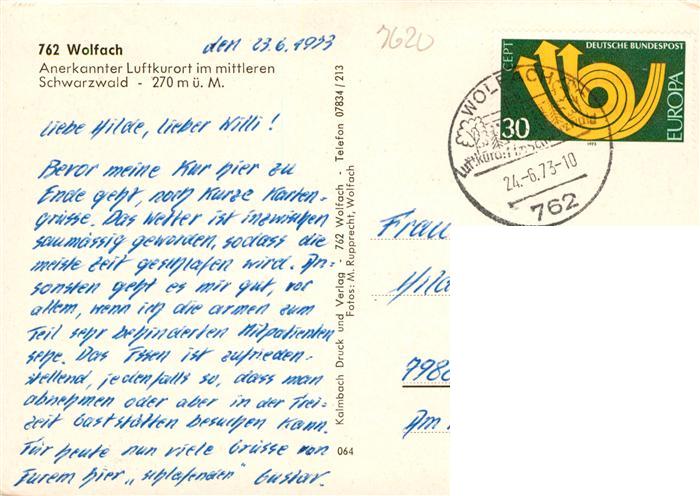 762 Wolfach
Anerkannter Luftkurort im mittleren
Schwarzwald - 270 m ü. M.
den 23.6.1973
7620
Liebe Hilde, lieber Willi!
Bevor meine Kur hier zu
Ende geht, noch kurze Karten-
grüsse. Das Wetter ist inzwischen
saumässig geworden, sodass die
meiste Zeit geschlafen wird. An-
sonsten geht es mir gut, vor
allem, wenn ich die armen zum
Teil sehr behinderten Mitpatienten
sehe. Das Essen ist zufrieden-
stellend, jedenfalls so, dass man
abnehmen oder aber in der Frei-
zeit Gaststätten besuchen kann.
Für heute nun viele Grüsse von
Eurem hier „schlafenden" Gustav.
Kalmbach Druck und Verlag - 762 Wolfach - Telefon 07834/213
Fotos: M. Rupprecht, Wolfach
064
CEPT
DEUTSCHE BUNDESPOST
EUROPA
30
1973
WOLFACH
Luftkurort
24.-6.73-10
762
Frau
Hild
798
Am